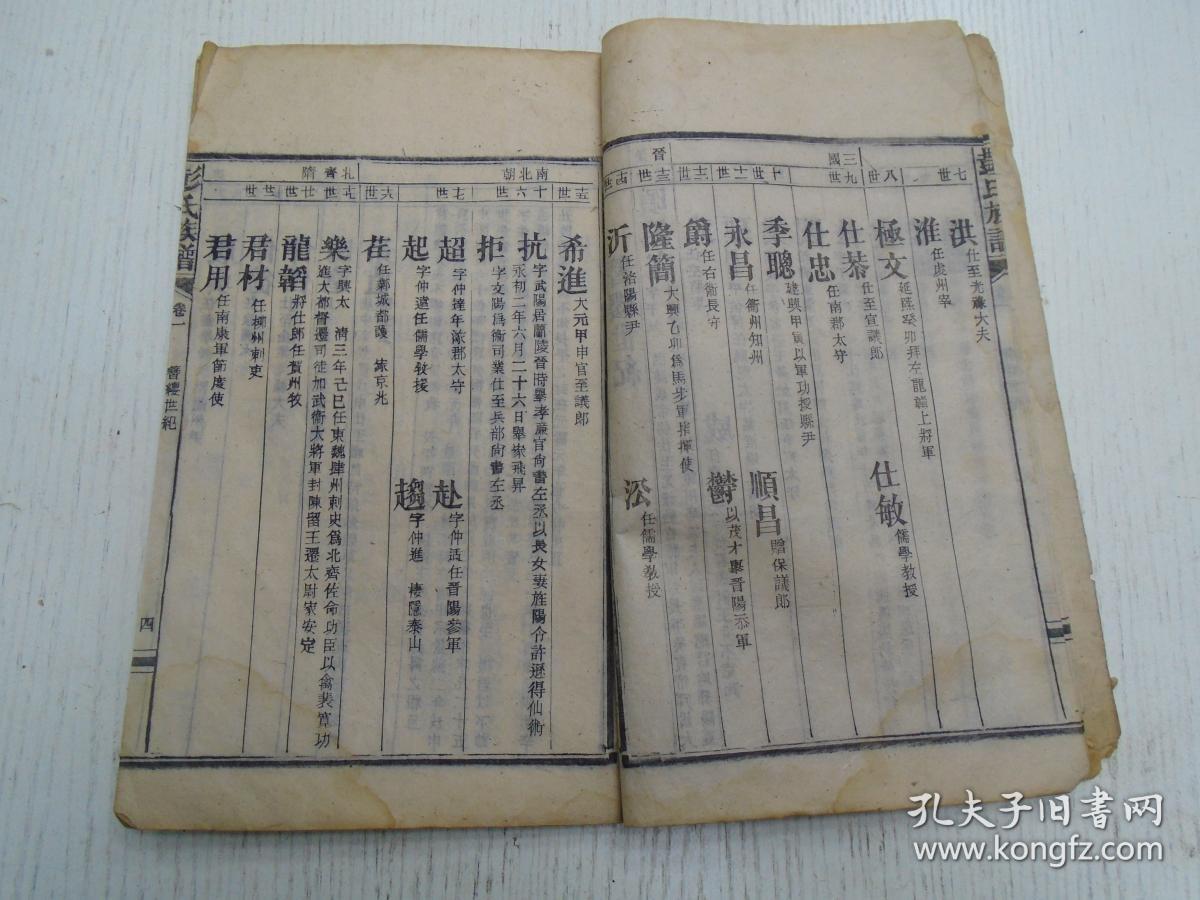 彭氏族譜
七世
洪 仕至光祿大夫
淮 任虔州宰
八世
極文 延熙癸卯拜左龍驤上將軍
三國
九世
仕恭 仕至宣議郎
仕敏 儒學教授
仕忠 任南郡太守
晉
十世
季聰 建興甲寅以軍功授縣尹
順昌 贈保議郎
十一世
永昌 任衢州知州
十二世
爵 任右衛長守
鬱 以茂才舉晉陽叅軍
十三世
隆簡 大興乙卯為馬步軍指揮使
十四世
沂 任洛陽縣尹
泓 任儒學教授
南北朝
十五世
希進 大元甲申官至議郎
十六世
抗 字武陽居蘭陵晉時舉孝廉官尚書左丞以長女妻旌陽令許遜得仙術
永初二年六月二十六日舉家飛昇
拒 字文陽為衛司業仕至兵部尚書左丞
十七世
超 字仲達年淤郡太守
赴 字仲适任晉陽參軍
起 字仲遠任儒學教授
趨 字仲進 棲隱泰山
十八世
荏 任鄴城都護 家京兆
北齊
十九世
樂 字興太 清三年己巳任東魏肆州刺史為北齊佐命功臣以禽裴寬功
進大都督遷司徒加武衛大將軍封陳留王遷太尉家安定
隋
廿世
龍韜 將仕郎任賀州牧
廿一世
君材 任柳州刺吏
君用 任南康軍節度使
彭氏族譜
卷一
簪纓世紀
四
孔夫子旧书网
www.kongfz.com